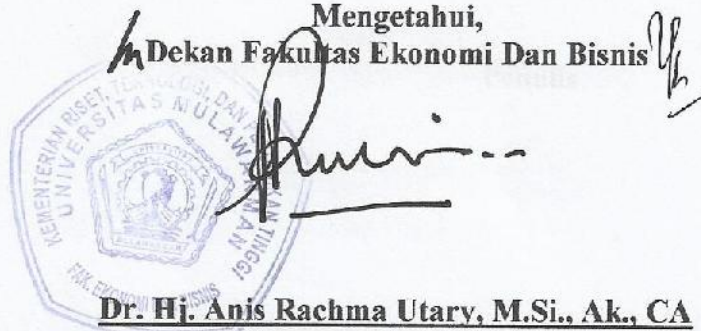 Mengetahui,
Dekan Fakultas Ekonomi Dan Bisnis
KEMENTERIAN RISET, TEKNOLOGI, DAN TINGGI
UNIVERSITAS MULAWARMAN
FAK. EKONOMI BISNIS
Dr. Hj. Anis Rachma Utary, M.Si., Ak., CA